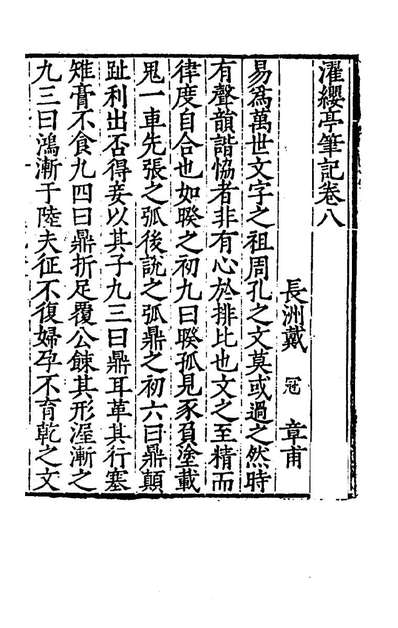 濯纓亭筆記卷八
長洲戴 冠 章甫
易爲萬世文字之祖周孔之文莫或過之然時
有聲韻諧恊者非有心於排比也文之至精而
律度自合也如睽之初九曰睽孤見豕負塗載
鬼一車先張之弧後說之弧鼎之初六曰鼎顛
趾利出否得妾以其子九三曰鼎耳革其行塞
雉膏不食九四曰鼎折足覆公餗其形渥漸之
九三曰鴻漸于陸夫征不復婦孕不育乾之文